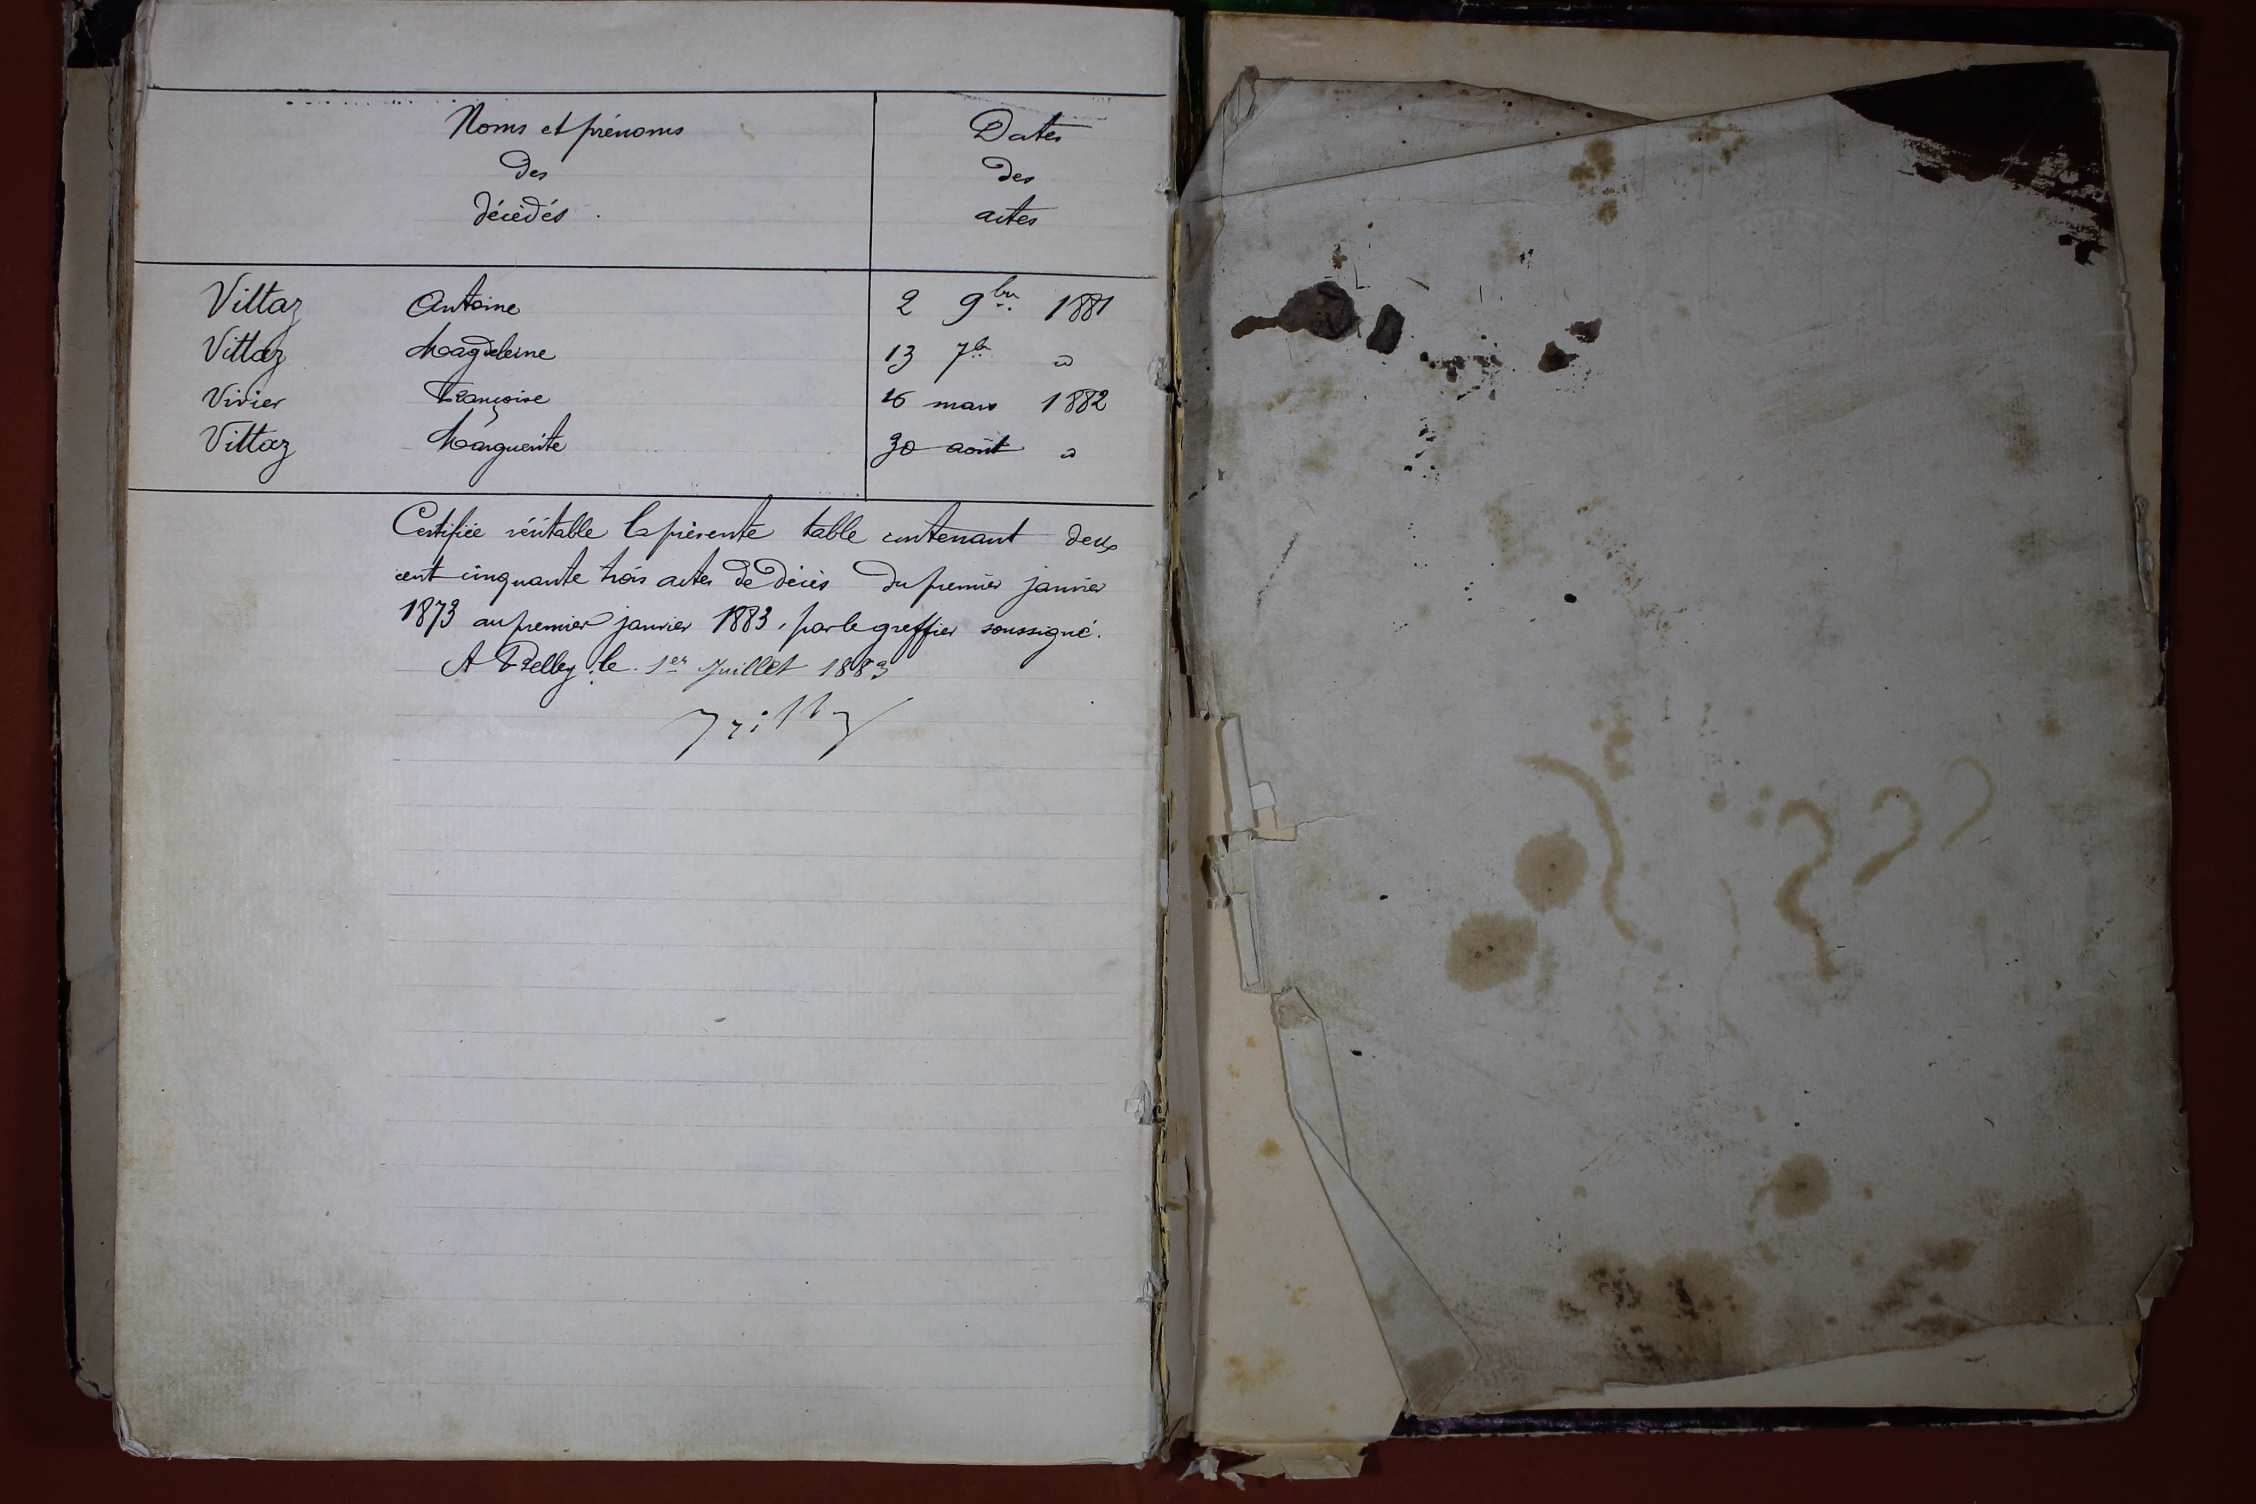 Noms et prénoms
des
décédés.
Dates
des
actes
Vittaz Antoine 2 9bre 1881
Vittaz Magdeleine 13 7b d
Vivier Françoise 16 mars 1882
Vittoz Marguerite 30 août d
Certifiée véritable la présente table contenant deux
cent cinquante trois actes de décès du premier janvier
1873 au premier janvier 1883, par le greffier soussigné.
A Belley le 1er Juillet 1883